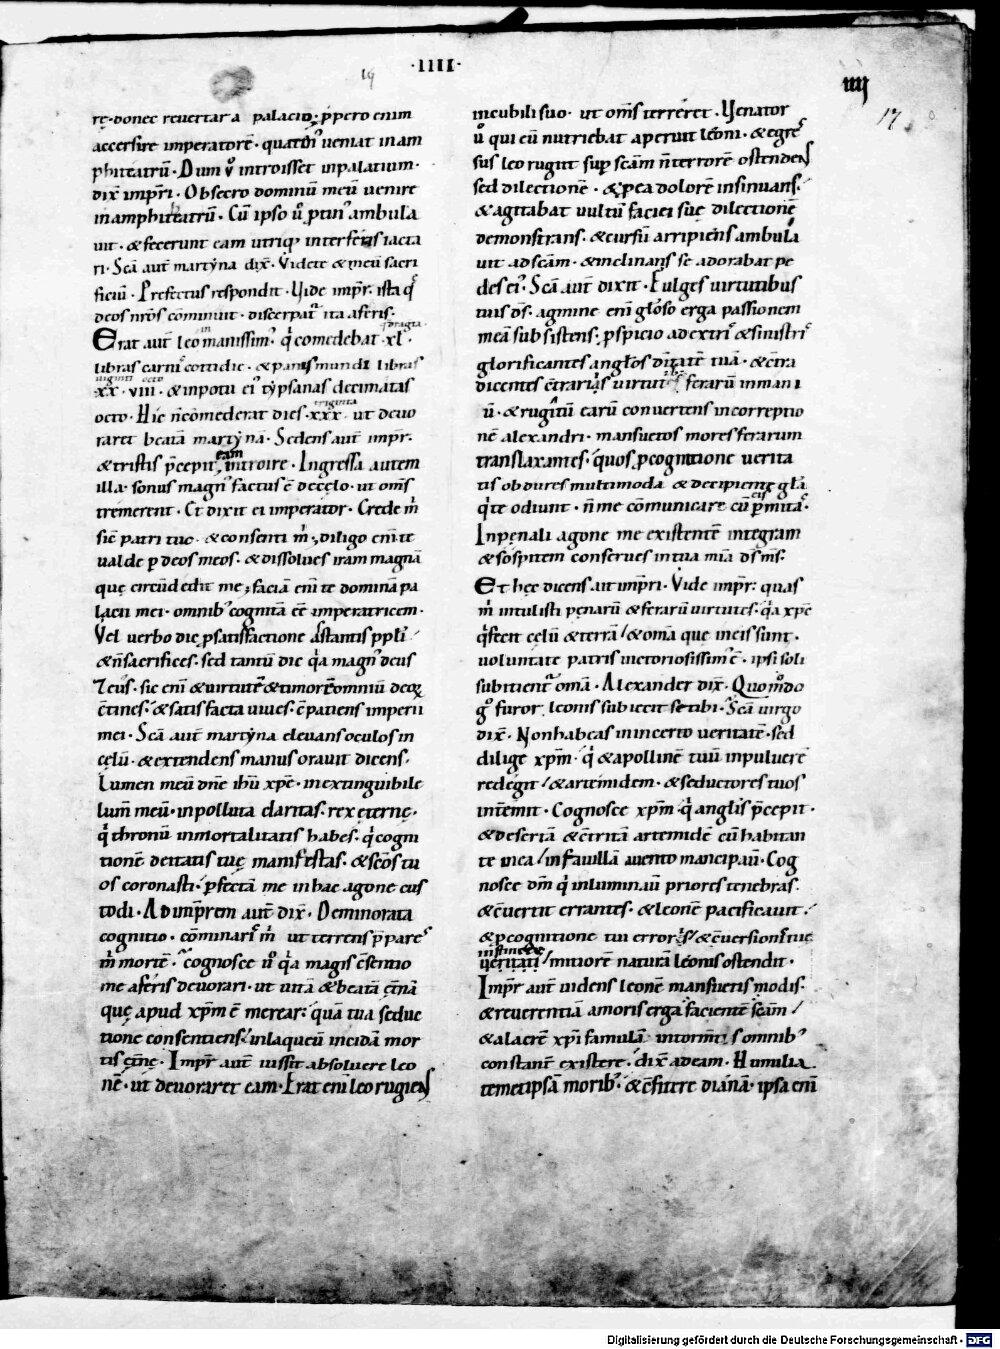 ·IIII·
19
iiij
17
rę. donec reuertar a palacio; p̄pero enim
accersire imperatorē. quatin᾽ ueniat in am
phiteatrū. Dum v̊ introisset inpalatium.
dix̄ imp̄ri. Obsecro dominū meū uenire
inamphiteatrū. Cū ipso ů p̄tin᾽ ambula
uit. & fecerunt eam utriq; interferis iacta
ri. Sc̄a aut̄ martyna dix̄. Videte & meū sacri
ficiū. Prefectus respondit. Vide imp̄r. ista q̊
deos nr̄os cōminuit. discerpat᾽ ita aferis.
Erat aut̄ leo inmanissim᾽. q̊ comedebat .xl᾽.
libras carni᾽ cottidie. & panis mundi libras
uiginti octo
.xx. viii. & inpotu ei᾽ typsanas decimatas
octo. Hic n̄comederat dies .xxx. ut deuo
triginta
raret beatā martynā. Sedens aut̄ imp̄r.
& tristis p̄cepit eam introire. Ingressa autem
illa. sonus magn᾽ factus ē decęlo. ut om̄s
tremerent. Et dixit ei imperator. Crede m̊
sic̄ patri tuo. & consenti m̊; diligo eni te
ualde p deos meos. & dissolues iram magnā
que circūdedit me; faciā eni te dominā pa
lacii mei. omnib᾽ cognitā eē imperatricem.
Vel uerbo dic p̱satisfactione astantis pp̄li
& n̄sacrifices. sed tantū dic q̊a magn᾽ deus
zeus. sic eni & uirtutē & timorē omniū deoꝝ
c̄tines. & satisfacta uiues. c̄patiens imperii
mei. Sc̄a aut̄ martyna eleuans oculos in
cęlū. & extendens manus orauit dicens.
Lumen meū dn̄e ih̄u xp̄e. inextinguibile
lum̄ meū. inpolluta claritas. rex ęternę.
q̊ thronū inmortalitatis habes. q̊ cogni
tionē deitatis tuę manifestas. & sc̄os tu
os coronasti. p̱fectā me inhac agone cus
todi. Ad imp̄rem aut̄ dix̄. Deminorata
cognitio. cōminari᾽ m̊ ut terrens p̄pares᾽
m̊ mortē. cognosce ů q̊a magis c̄sentio
me aferis deuorari. ut uitā & beatā et̄nā
que apud xp̄m ē merear. quā tua seduc
tione consentiens. inlaqueū incidā mor
tis et̄nę. Imp̄r aut̄ iussit absoluere leo
nē. ut deuoraret eam. Erat eni leo rugiens
incubili suo. ut om̄s terreret. Venator
ů qui eū nutriebat aperuit leoni. & egres᾽
sus leo rugiit sup̱ sc̄am n̄terrorē ostendens
sed dilectionē. & p̱ea dolorē insinuans.
& agitabat uultū faciei suę dilectionē
demonstrans. & cursū arripiens ambula
uit ad sc̄am. & inclinans se adorabat pe
des ei᾽. Sc̄a aut̄ dixit. Fulges uirtutibus
tuis ds̄. agmine eni gl̄oso erga passionem
meā subsistens. p̱spicio ad extri᾽ & sinistri᾽
glorificantes angl̊os diuitatē tuā. & c̄tra
dicentes c̄trariis uirtutib᾽ ferarū inmani
ū. & rugitū earū conuertens incorreptio
nē alexandri. mansuetos mores ferarum
translaxantes. quos p̱cognitione uerita
tis obdures multimoda & decipiente gl̄a
q̊ te odiunt. n̄me cōmunicare cū eis p̱mitas.
Inpenali agone me existentē integram
& sospitem conserues intua mīa ds̄ ms̄.
Et hęc dicens. ait imp̄ri. Vide imp̄r. quas
m̊ intulisti penarū & ferarū uirtutes. q̊a xp̄c
q̊ fecit cęlū & terrā & om̄a que ineis sunt.
uoluntate patris uictoriosissim᾽ ē. ipsi soli
subitient᾽ om̄a. Alexander dix̄. Quom̊do
g̊ furor leonis subiecit se tibi. Sc̄a uirgo
dix̄. Nonhabeas inincerto ueritatē. sed
dilige xp̄m. q̊ & apollinē tuū inpuluerē
redegit / & artimidem. & seductores tuos
intēmit. Cognosce xp̄m q̊ anglis p̄cepit.
& deseriā & c̄tritā artemidē cū habitan
te inea / infauillā auento mancipaū. Cog
nosce dm̄ q̊ inluminaū priores tenebras.
& c̄uertit errantes. & leonē pacificauit.
& p̱cognitione tui erroris / & c̄uersionis tuę
ueritati / mitiorē naturā leonis ostendit.
Imp̄r aut̄ uidens leonē mansuetis modis.
& reuerentiā amoris erga facientē sc̄am /
& alacrē xp̄i famulā intorm̄tis omnib᾽
constanē existere. dix̄ adeam. Humilia
temetipsā morib᾽. & c̄fitere dianā. ipsa eni
Digitalisierung gefördert durch die Deutsche Forschungsgemeinschaft - DFG